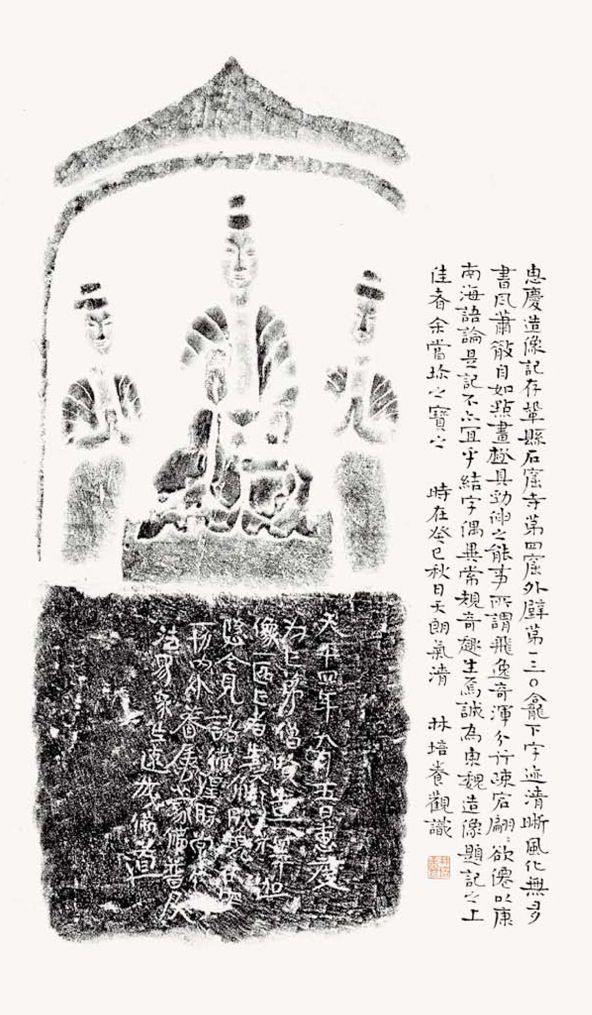 惠慶造像記存鞏縣石窟寺第四窟外壁第一三〇龕下字迹清晰風化無多
書風蕭散自如點畫極具勁之能事所謂飛逸奇渾分行疎宕翩〻欲僊以康
南海語論是記不亦宜乎結字偶異常規奇趣生焉誠為東魏造像題記之上
佳者余當珍之寶之 時在癸巳秋日天朗氣清 林培養觀識
天平四年月五日惠慶
為亡弟僧造釋加
像一區亡者生
令見諸佛
眷屬蒙佛普及
法界眾生速成佛道